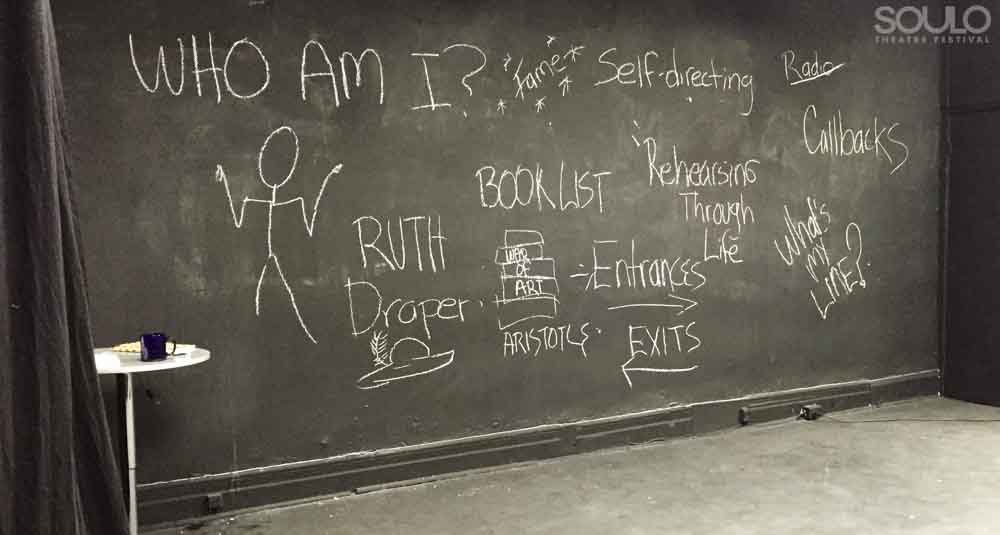 SOULO
THEATER FESTIVAL
WHO AM I?
Fame
Self-directing
Radio
Callbacks
BOOK LIST
Rehearsing
Through
Life
RUTH
Draper
WAR
OF
ART
ARISTOTLE
Entrances
EXITS
What's
my
LINE?